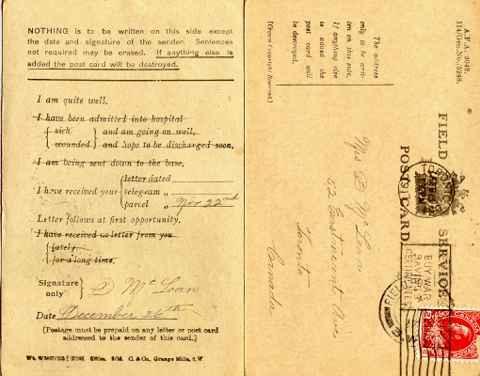 NOTHING is to be written on this side except
the date and signature of the sender. Sentences
not required may be erased. If anything else is
added the post card will be destroyed.
I am quite well.
I have been admitted into hospital
sick and am going on well.
wounded and hope to be discharged soon.
I am being sent down to the base.
letter dated
I have received your telegram „
parcel „ Nov 22nd
Letter follows at first opportunity.
I have received no letter from you
lately
for a long time.
Signature
only D McLean
Date December 26th
[Postage must be prepaid on any letter or post card
addressed to the sender of this card.]
C. & Co., Grange Mills, S.W.
The address
only to be writ-
ten on this side.
If anything else
is added the
post card will
be destroyed.
[Crown Copyright Reserved]
A.F.A. 2042.
114/Gen.No./5248.
FIELD SERVICE
POST CARD.
Mrs D McLean
52 Eastmount Ave
Toronto
Canada
FIELD
BUY WAR
SAVINGS
CERTIFICATES
CANADA